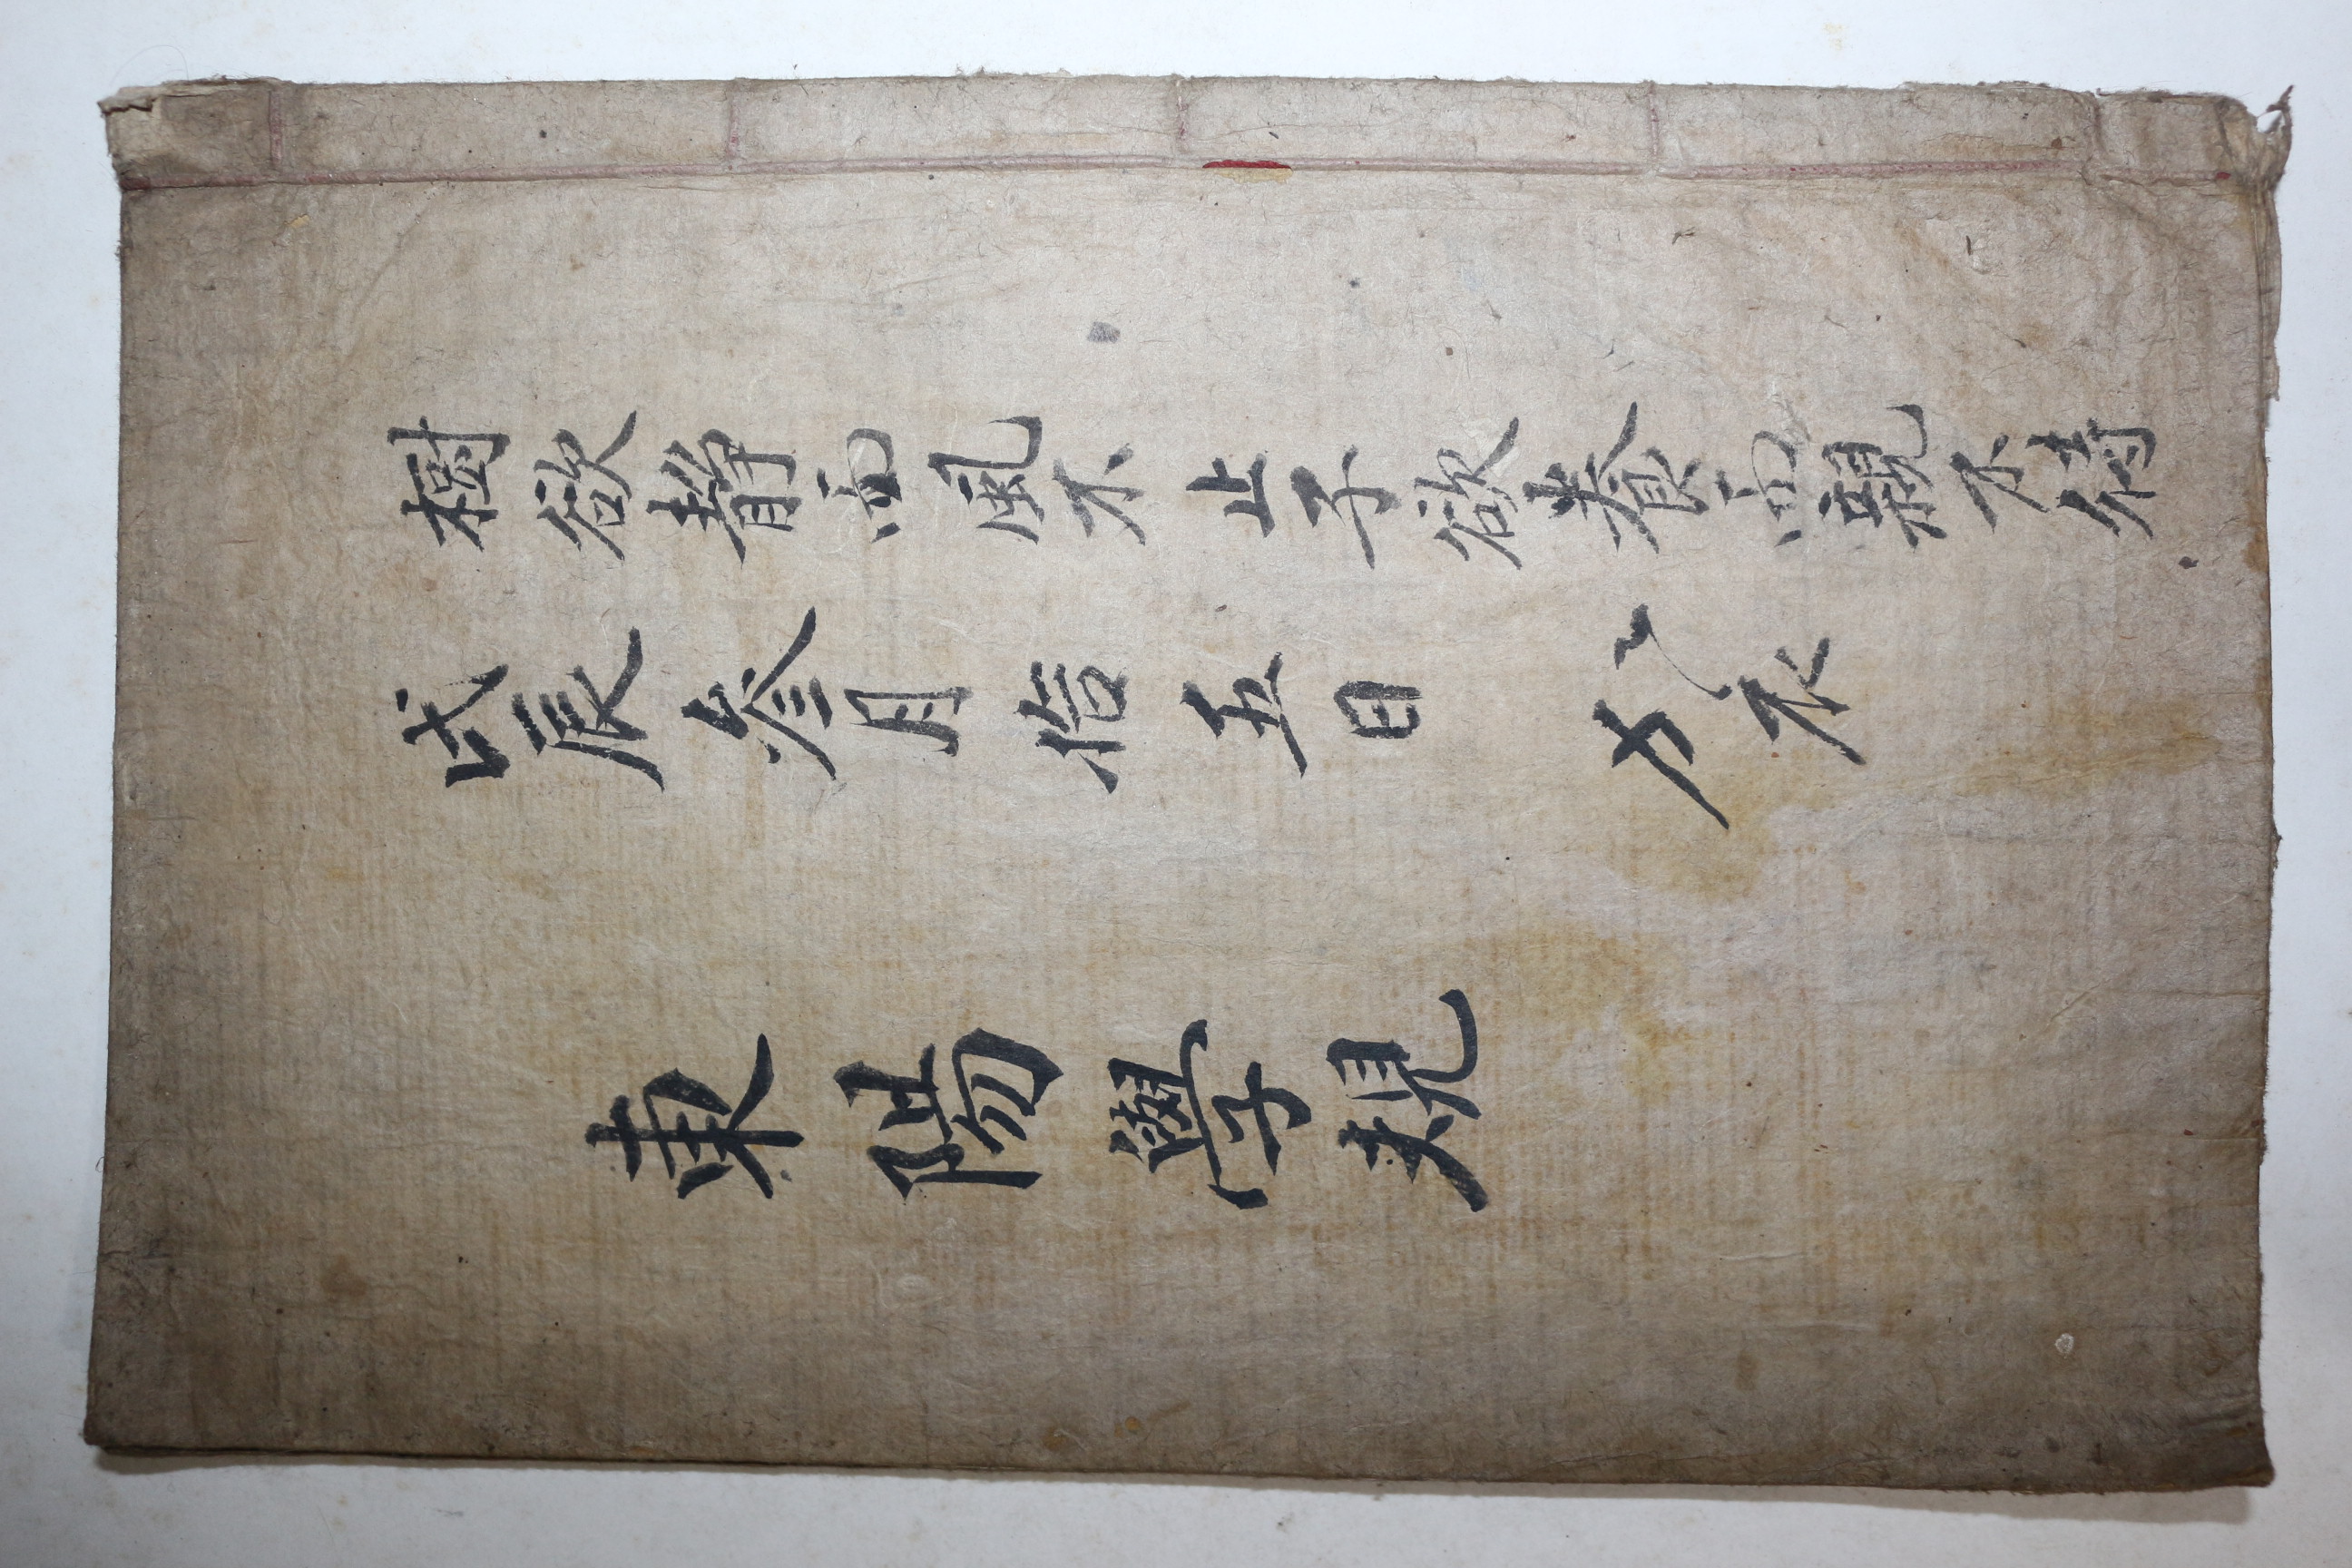 樹欲静而風不止子欲養而親不待
戊辰叄月拾五日
東陽學規